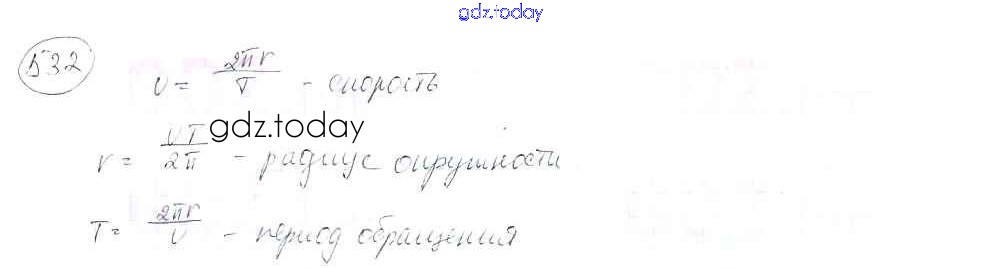 gdz.today
532
υ = 2πr/T - скорость
gdz.today
r = υT/2π - радиус окружности
T = 2πr/υ - период обращения